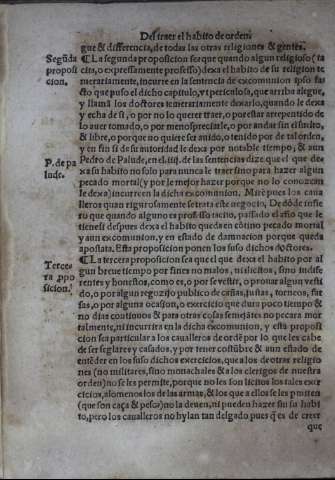 Del traer el habito de orden.
gue & differencia, de todas las otras religiones & gentes.
Segūda proposicion.
¶ La segunda proposicion sea que quando algun religioso (ta
cito, o expressamente professo) dexa el habito de su religion te
merariamente, incurre en la sentencia de excomunion ipso fac
cto que puso el dicho capitulo, vt periculosa, que arriba alegue,
y llamā los doctores temerariamente dexarlo, quando le dexa
y echa de si, o por no lo querer traer, o por estar arrepentido de
lo auer tomado, o por menospreciarle, o por andar sin el suelto,
& libre, o por que no quiere ser auido, o tenido por de tal orden,
y en fin si de su autoridad le dexa por notable tiempo, & aun
P. de palude.
Pedro de Palude, en el .iiij. de las sentencias dize que el que de
xa su habito no solo para nunca le traer sino para hazer algun
pecado mortal (y por le mejor hazer porque no lo conozcan
le dexa) incurre en la dicha excomunion. Mirē pues los caua
lleros quan rigurosamente se trata este negocio, De dōde infie
ro que quando alguno es professo tacito, passado el año que le
tienes si despues dexa el habito queda en cōtino pecado mortal
y aun excomunion, y en estado de damnacion porque queda
apostata. Esta proposicion ponen los suso dichos doctores.
Tercera pposicion.
¶ La tercera proposicion sea que el que dexa el habito por al
gun breue tiempo por fines no malos, ni ilicitos, sino indife
rentes y honestos, como es, o por se vestir, o prouar algun vesti
do, o por algun regozijo publico de cañas, justas, torneos, far
sas, o por alguna ocasion, o exercicio que dura poco tiempo &
no dias continuos & para otras cosas semejātes no pecara mor
talmente, ni incurrira en la dicha excomunion, y esta proposi
cion sea particular a los caualleros de ordē por lo que les cabe
de ser seglares y casados, y por tener costūbre & aun estado de
entēder en los suso dichos exercicios, que a los de otras religio
nes (no militares, sino monachales & a los clerigos de nuestra
orden) no se les permite, porque no les son licitos los tales exer
cicios, alomenos los de las armas, & los que a ellos se les permiten
(que son caça & pesca) no la deuen, ni pueden hazer sin su habi
to, pero los caualleros no hylan tan delgado pues q̄ es de creer
que